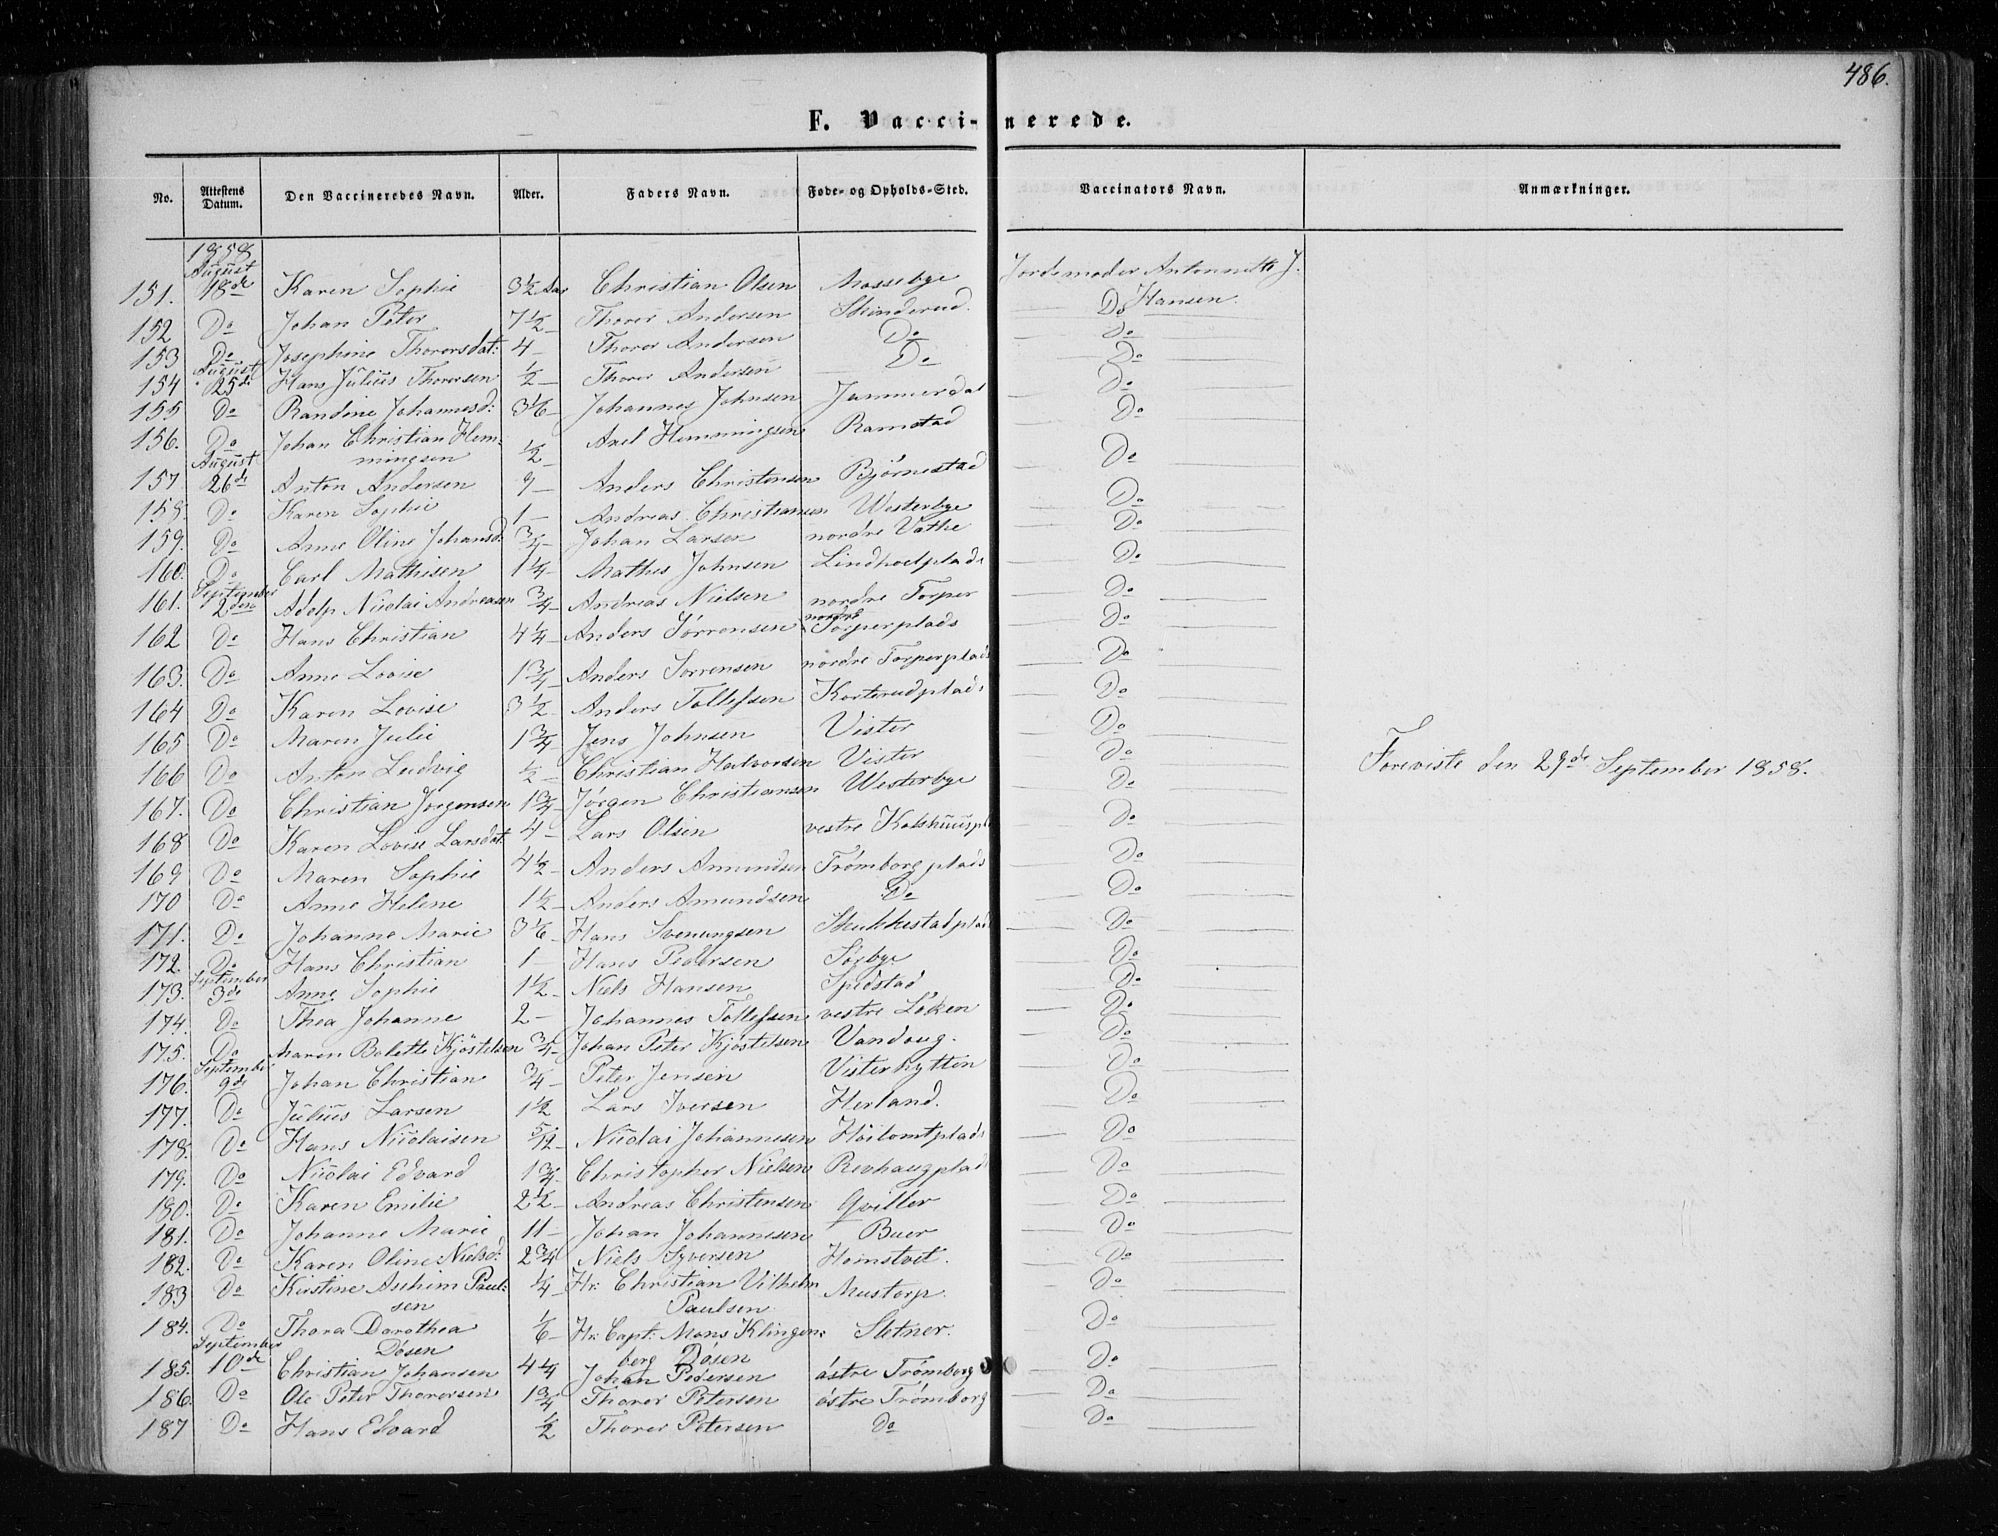 486.
F. Vaccinerede.
No. Attestens Datum. Den Vaccineredes Navn. Alder. Faders Navn. Føde- og Opholds-Sted. Vaccinators Navn. Anmærkninger.
1858
August
151. 18de Karen Sophie 3½ Aar Christian Olsen Mossebye Jordemoder Antonnette J. Hansen.
152 Do Johan Peter 7½ — Thorer Andersen Skinderud. — Do —
153 Do Josephine Thorersdat: 4 — Thorer Andersen Do — Do —
August
154 25de Hans Julius Thorersen ½ — Thorer Andersen — Do — Do —
155 Do Randine Johannesd: 3⅙ — Johannes Johnsen Jammerdal — Do —
156. Do Johan Christian Hemmingsen ½ — Axel Hemmingsen Ramstad — Do —
August
157 26de Anton Andersen 9 — Anders Christensen Bjørnestad — Do —
158. Do Karen Sophie 1 — Andreas Christiansen Westerbye — Do —
159. Do Anne Oline Johansd: ¾ — Johan Larsen nordre Vathe — Do —
160. Do Carl Mathisen 1¼ — Mathes Johnsen Lindhoelplads — Do —
September
161. 2den Adolp Nicolai Andreasen ¾ — Andreas Nielsen nordre Torper — Do —
162 Do Hans Christian 4¼ — Anders Sørrensen nordre Torperplads — Do —
163. Do Anne Lovise 1¾ — Anders Sørrensen nordre Torperplads — Do —
164 Do Karen Lovise 3½ — Anders Tollefsen Korterudplads — Do —
165 Do Maren Julie 1¾ — Jens Johnsen Vister — Do —
166 Do Anton Ludvig ½ — Christian Halvorsen Vister — Do —
Foreviste den 29de September 1858.
167. Do Christian Jørgensen 1¾ — Jørgen Christiansen Westerbye — Do —
168 Do Karen Lovise Larsdat: 4 — Lars Olsen vestre Kolshuuspl — Do —
169 Do Maren Sophie 4½ — Anders Amundsen Trømborgplads — Do —
170 Do Anne Helene 1½ — Anders Amundsen Do — Do —
171. Do Johanne Marie 3⅙ — Hans Svenungsen Skukkestadplads — Do —
172. Do Hans Christian 1 — Hans Pedersen Søgbye — Do —
September
173. 3de Anne Sophie 1½ — Niels Hansen Spidstad — Do —
174. Do Thea Johanne 2 — Johannes Tollefsen vestre Løken — Do —
175. Do Maren Bolette Kjøstelsen ¾ — Johan Peter Kjøstelsen Vandoug. — Do —
September
176. 9de Johan Christian ¾ — Peter Jensen Visterhytten — Do —
177. Do Julius Larsen 1½ Lars Iversen Herland. — Do —
178. Do Hans Nicolaisen 5/12 — Nicolai Johannesen Høilomtplads — Do —
179. Do Nicolai Edvard 1¾ — Christopher Nielsen Revhaugplad — Do —
180. Do Karen Emilie 2½ — Andreas Christensen Qviller — Do —
181. Do Johanne Marie 11 — Johan Johannesen Buer — Do —
182. Do Karen Oline Nielsd: 2¾ Niels Syversen Homstvet. — Do —
183 Do Kirstine Aschim Paulsen ¼ — Hr: Christian Vilhelm Paulsen Mustorp. — Do —
184. Do Thora Dorothea Døsen ⅙ — Hr: Capt: Mons Klingenberg Døsen Sletner. — Do —
September
185. 10de Christian Johansen 4¼ Johan Pedersen østre Trømborg — Do —
186. Do Ole Peter Thorersen 1¾ Thorer Petersen østre Trømborg — Do —
187 Do Hans Edvard ½ Thorer Petersen Do — Do —